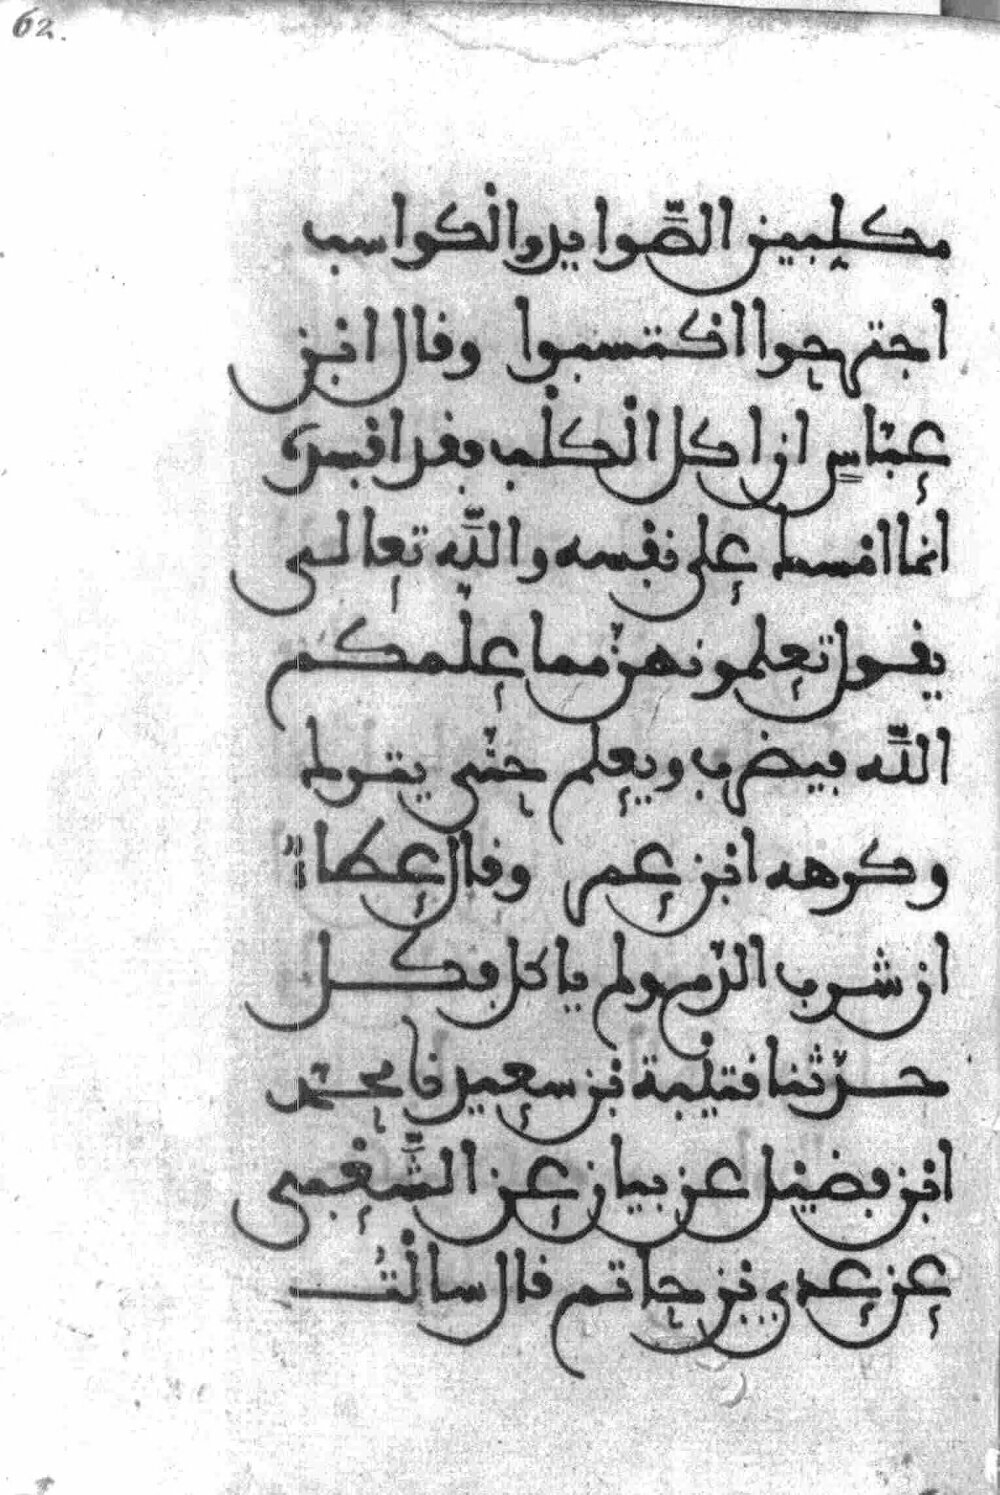 62.
مكلبين الصوايد والكواسب
اجترحوا اكتسبوا وقال ابن
عباس ان اكل الكلب فقد افسده
انما امسك على نفسه والله تعالى
يقول تعلمونهن مما علمكم
الله فيضرب ويعلم حتى يترك
وكرهه ابن عمر وقال عطاء
ان شرب الدم ولم ياكل فكل
حدثنا قتيبة بن سعيد نا محمد
ابن فضيل عن بيان عن الشعبي
عن عدي بن حاتم قال سالت